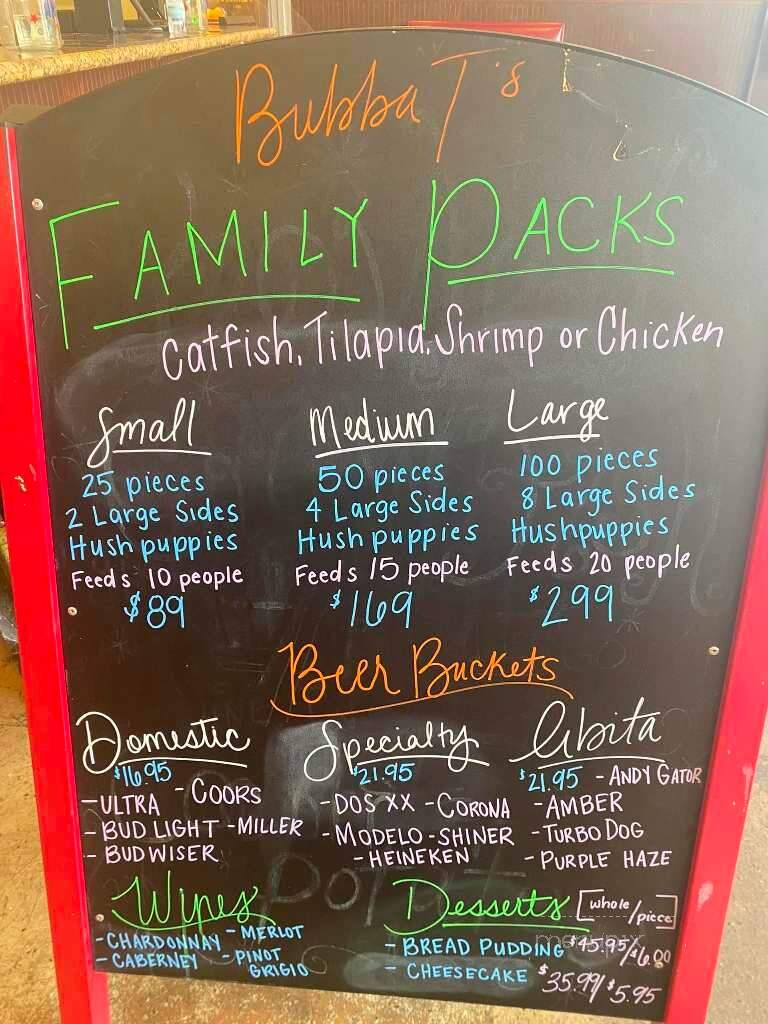 Bubba T's
FAMILY PACKS
Catfish, Tilapia, Shrimp or Chicken
Small
25 pieces
2 Large Sides
Hush puppies
Feeds 10 people
$89
Medium
50 pieces
4 Large Sides
Hush puppies
Feeds 15 people
$169
Large
100 pieces
8 Large Sides
Hushpuppies
Feeds 20 people
$299
Beer Buckets
Domestic
$16.95
- ULTRA - COORS
- BUD LIGHT - MILLER
- BUDWISER
Specialty
$21.95
- DOS XX - CORONA
- MODELO - SHINER
- HEINEKEN
Abita
$21.95 - ANDY GATOR
- AMBER
- TURBO DOG
- PURPLE HAZE
Wines
- CHARDONNAY - MERLOT
- CABERNEY - PINOT
GRIGIO
Desserts [whole/piece]
- BREAD PUDDING $45.95/$6.00
- CHEESECAKE $35.99/$5.95